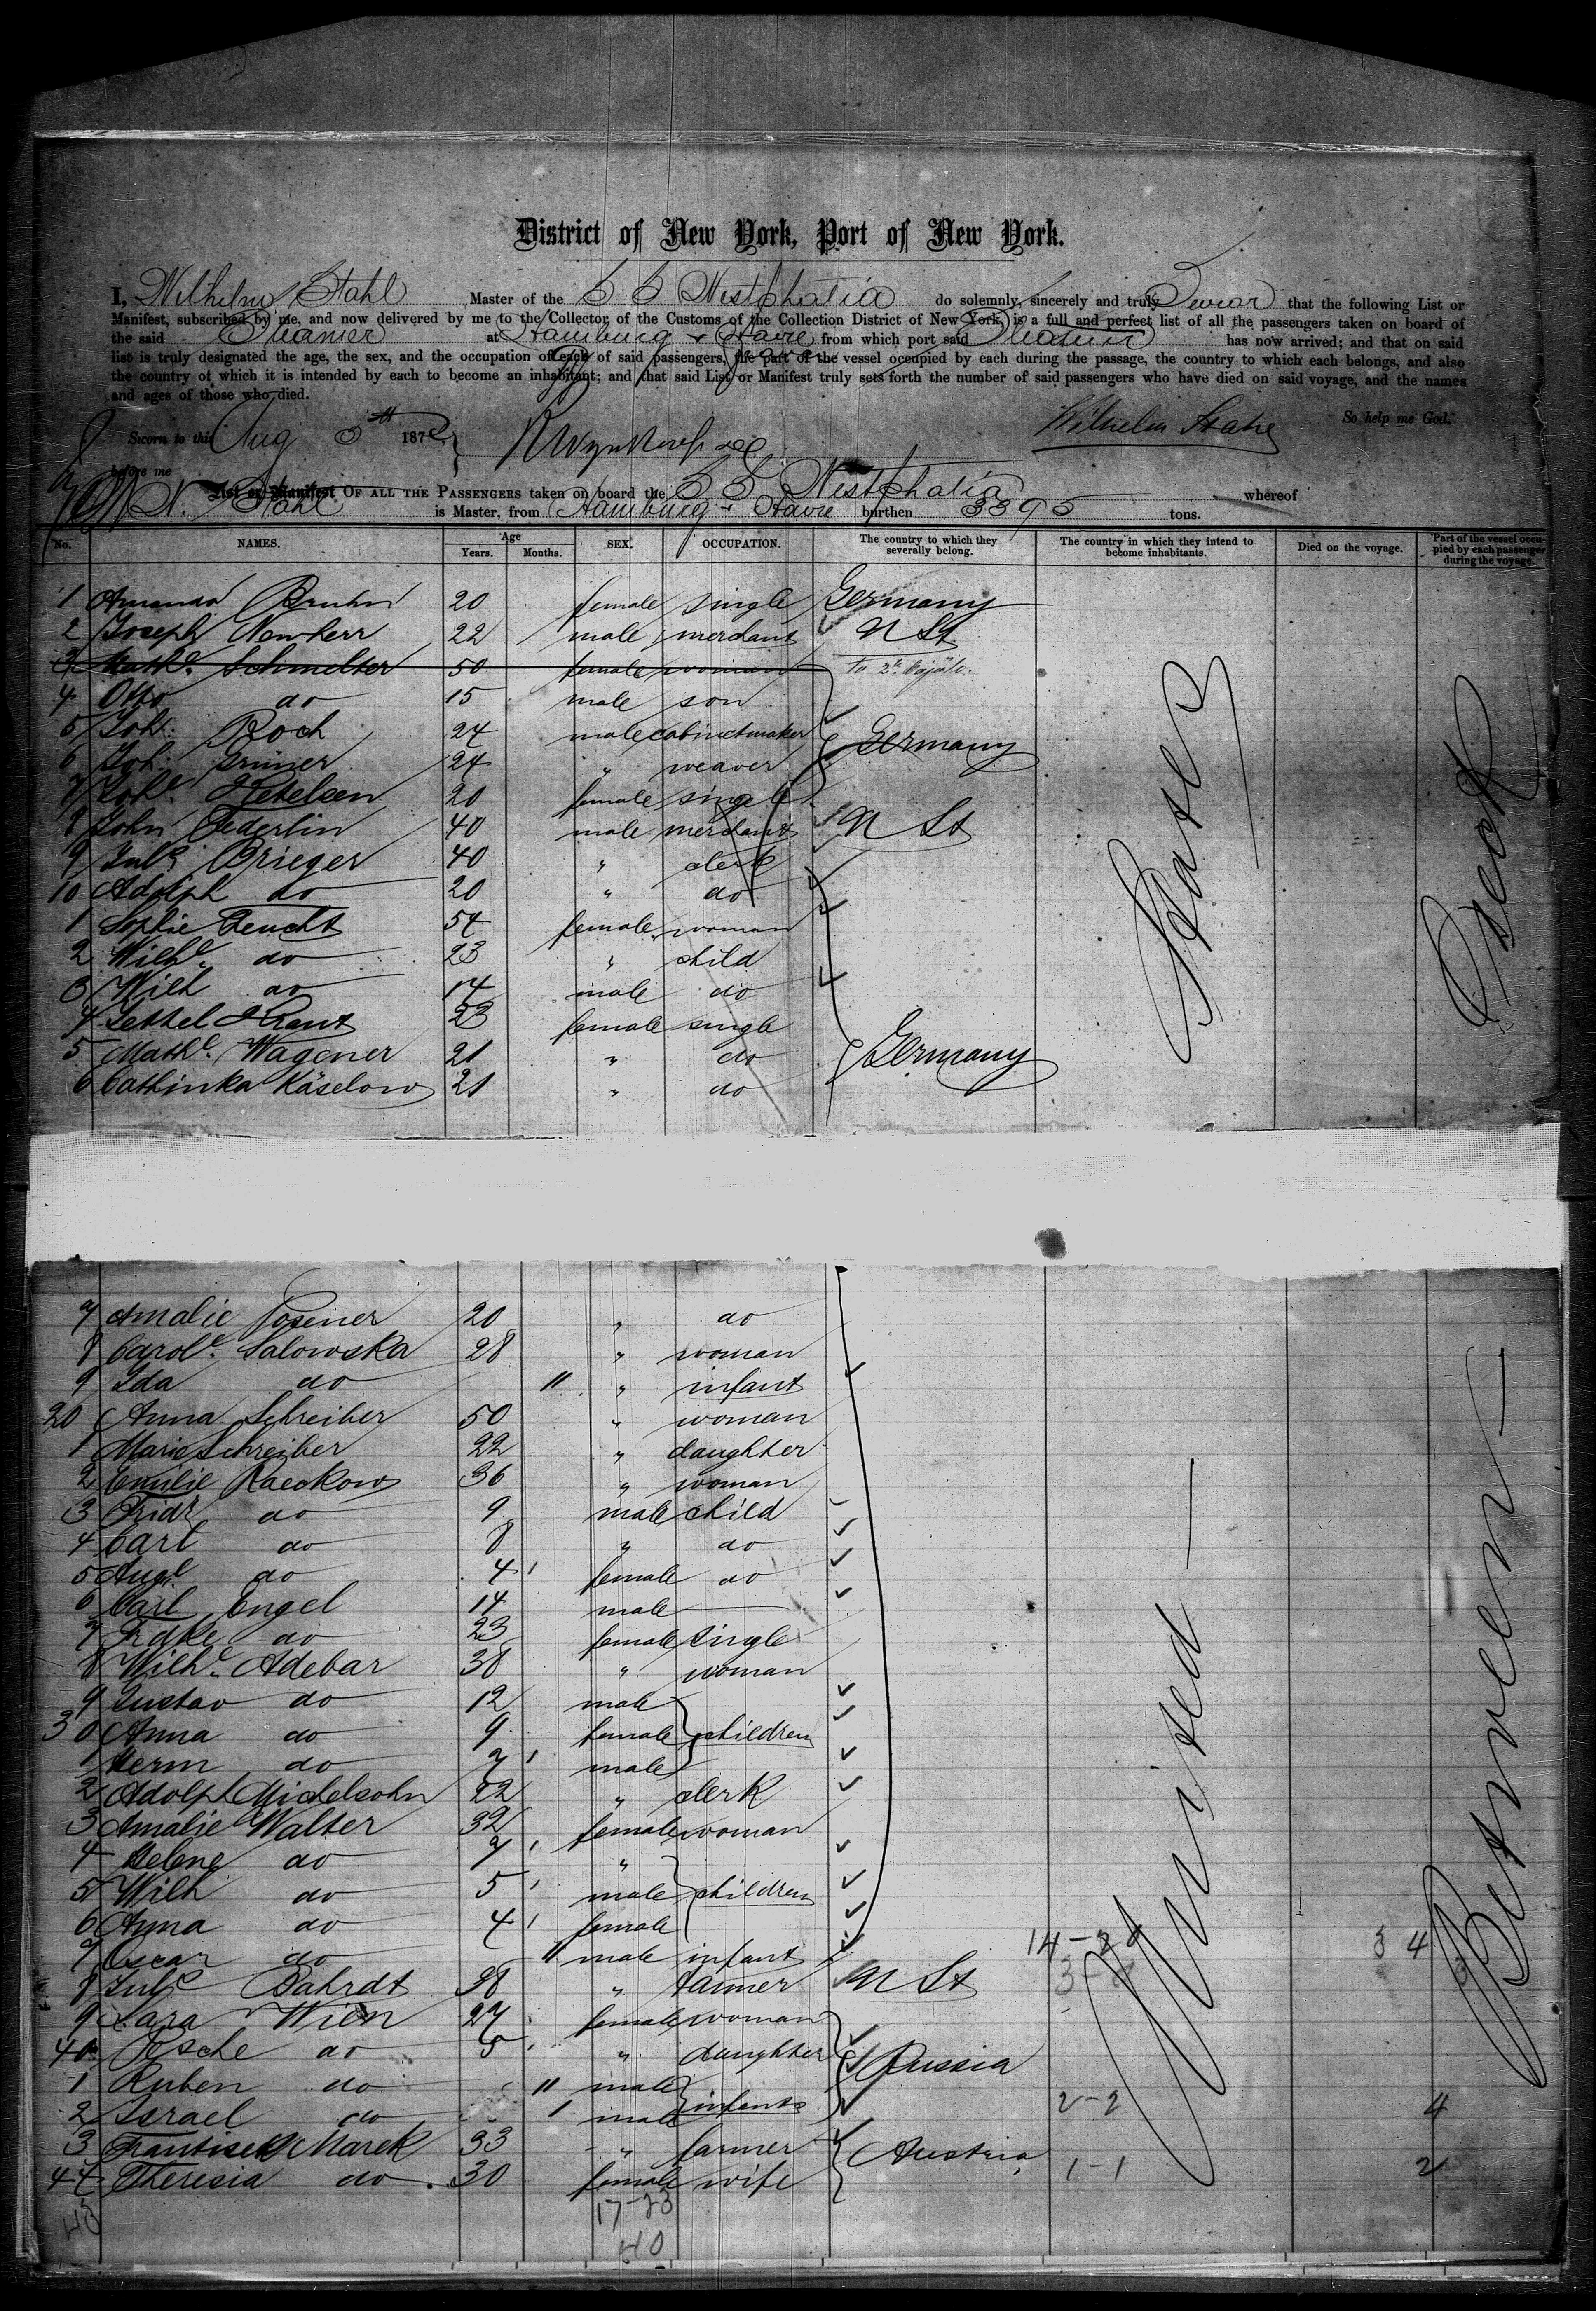 District of New York, Port of New York.
I, Wilhelm Stahl Master of the S S Westphalia do solemnly, sincerely and truly Swear that the following List or
Manifest, subscribed by me, and now delivered by me to the Collector of the Customs of the Collection District of New York, is a full and perfect list of all the passengers taken on board of
the said Steamer at Hamburg & Havre from which port said Steamer has now arrived; and that on said
list is truly designated the age, the sex, and the occupation of each of said passengers, the part of the vessel occupied by each during the passage, the country to which each belongs, and also
the country of which it is intended by each to become an inhabitant; and that said List or Manifest truly sets forth the number of said passengers who have died on said voyage, and the names
and ages of those who died.
So help me God.
Sworn to this Aug 187
Wilhelm Stahl
before me
List or Manifest OF ALL THE PASSENGERS taken on board the S S Westphalia whereof
W. Stahl is Master, from Hamburg & Havre burthen 3395 tons.
No. NAMES. Age Years. Months. SEX. OCCUPATION. The country to which they severally belong. The country in which they intend to become inhabitants. Died on the voyage. Part of the vessel occupied by each passenger during the voyage.
1 Amanda Bruhn 20 female single Germany
2 Joseph Newherr 22 male merchant U St
3 Mathe. Schmelter 50 female woman to 2d Cajüte.
4 Otto do 15 male son
5 Joh. Koch 24 male cabinetmaker
6 Joh. Grüner 24 " weaver Germany
7 Ketelsen 20 female single
8 John Oederlin 40 male merchant U St
9 Juls Brieger 40 " clerk
10 Adolph do 20 " do
1 Sophie Feucht 54 female woman
2 Wilhe. do 23 " child
3 Wilh do 14 male do
4 Settel Krant 23 female single
5 Mathe. Wagener 21 " do Germany
6 Cathinka Käselow 21 " do
7 Amalie Posener 20 " do
8 Carole. Salowska 28 " woman
9 Ida do 11 " infant
20 Anna Schreiber 50 " woman
1 Marie Schreiber 22 " daughter
2 Emilie Raeckow 36 " woman
3 Fridr do 9 male child
4 Carl do 8 " do
5 Auge do 4 female do
6 Carl Engel 14 male
7 Frdke do 23 female single
8 Wilhe. Adebar 38 " woman
9 Gustav do 12 male
30 Anna do 9 female children
1 Herm do 7 male
2 Adolph Michelsohn 22 " clerk
3 Amalie Walter 32 female woman
4 Helene do 7 "
5 Wilh do 5 male children
6 Anna do 4 female
7 Oscar do 11 male infant
8 Juls Bahrdt 38 " tanner U St
9 Sara Wien 27 female woman
40 Pesche do 5 " daughter Russia
1 Ruben do 11 male
2 Israel do 1 male infants 2-2 4
3 Frantisek Marek 33 " farmer Austria
44 Theresia do 30 female wife 1-1 2
17-23
40
United States
Between Deck